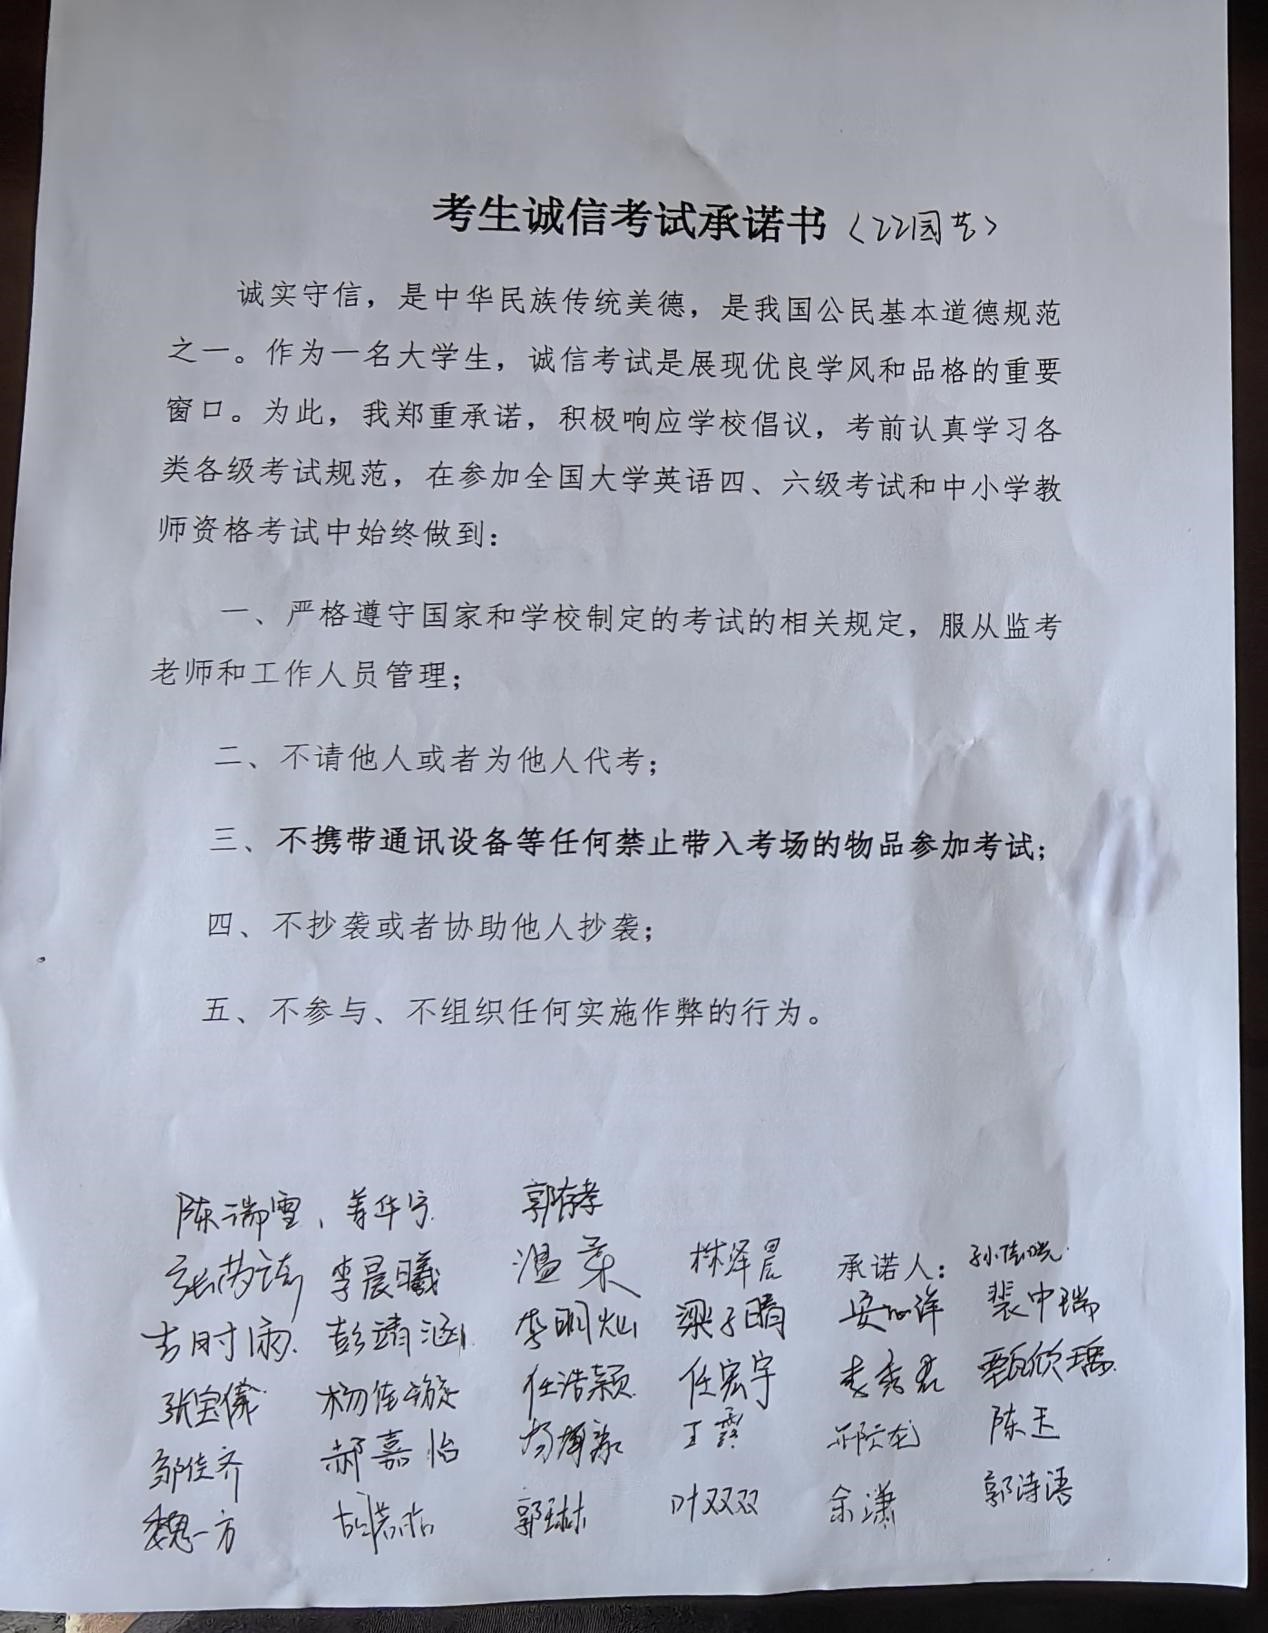 考生诚信考试承诺书（22园艺）
诚实守信，是中华民族传统美德，是我国公民基本道德规范
之一。作为一名大学生，诚信考试是展现优良学风和品格的重要
窗口。为此，我郑重承诺，积极响应学校倡议，考前认真学习各
类各级考试规范，在参加全国大学英语四、六级考试和中小学教
师资格考试中始终做到：
一、严格遵守国家和学校制定的考试的相关规定，服从监考
老师和工作人员管理；
二、不请他人或者为他人代考；
三、不携带通讯设备等任何禁止带入考场的物品参加考试；
四、不抄袭或者协助他人抄袭；
五、不参与、不组织任何实施作弊的行为。
陈瑞雪、姜华宁 郭存孝
李晨曦 温柔 林泽晨 承诺人：
吉时雨 彭靖涵 李明灿 梁子晴 裴中瑞
张宝仪 杨佳璇 任浩颖 任宏宇 甄欣瑀
邹佳齐 郝嘉怡 陈玉
魏一方 郭琳 叶双双 余潇 郭诗语